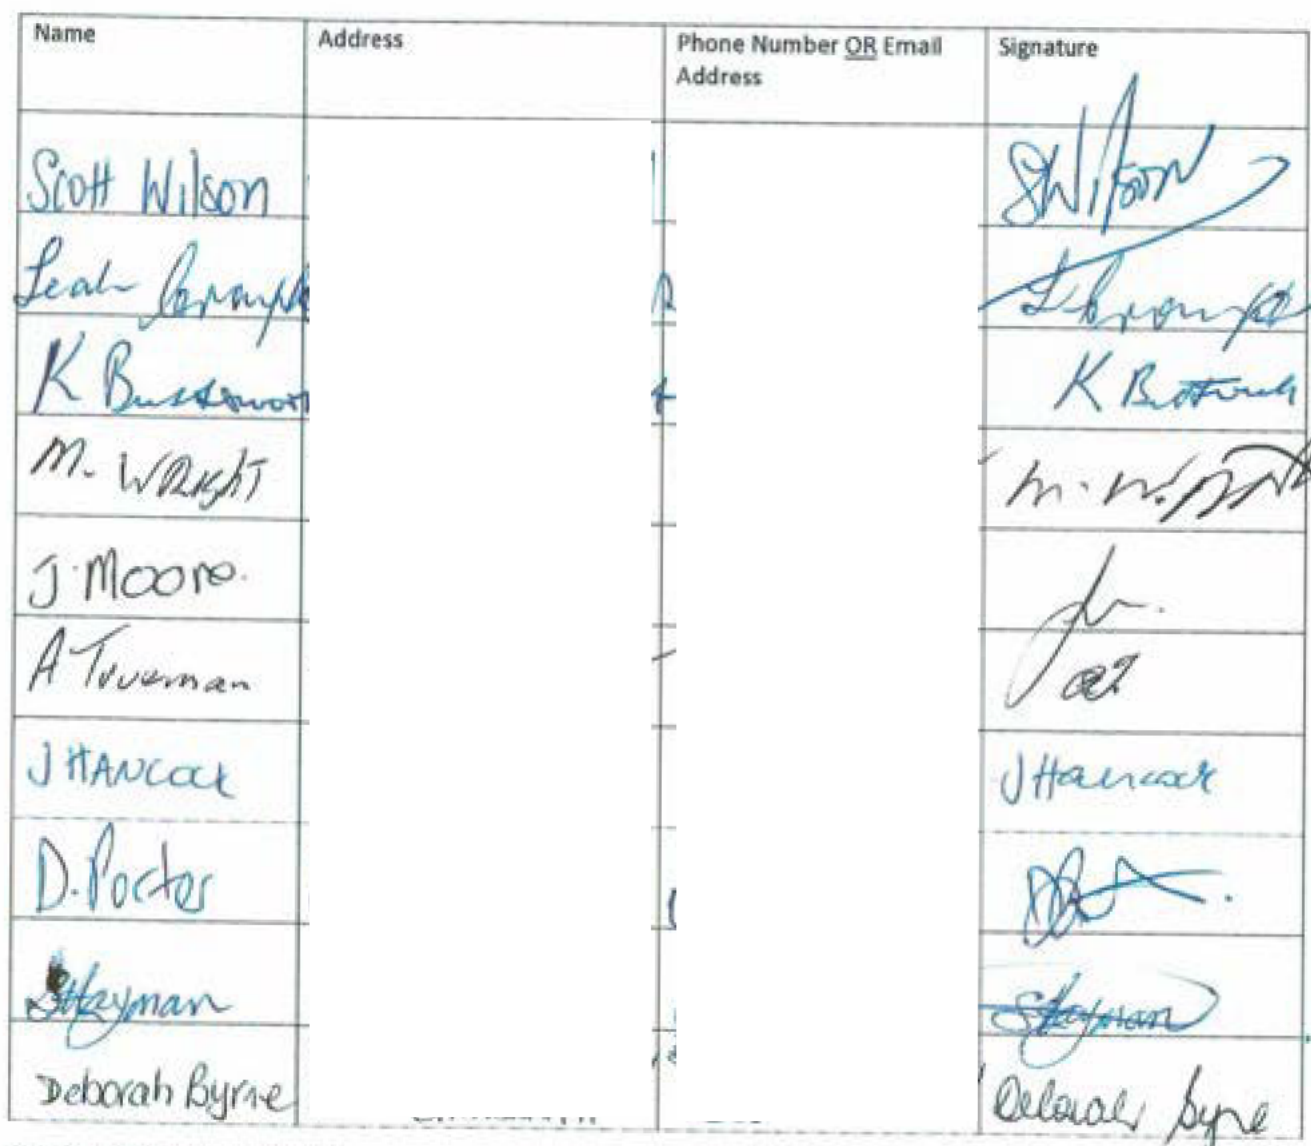 Name Address Phone Number OR Email Address Signature
Scott Wilson SWilson
Leah
K K
M. WRIGHT M. Wright
J. Moore.
A Trueman
J HANCOCK J Hancock
D. Porter
S Hayman S Hayman
Deborah Byrne Deborah Byrne